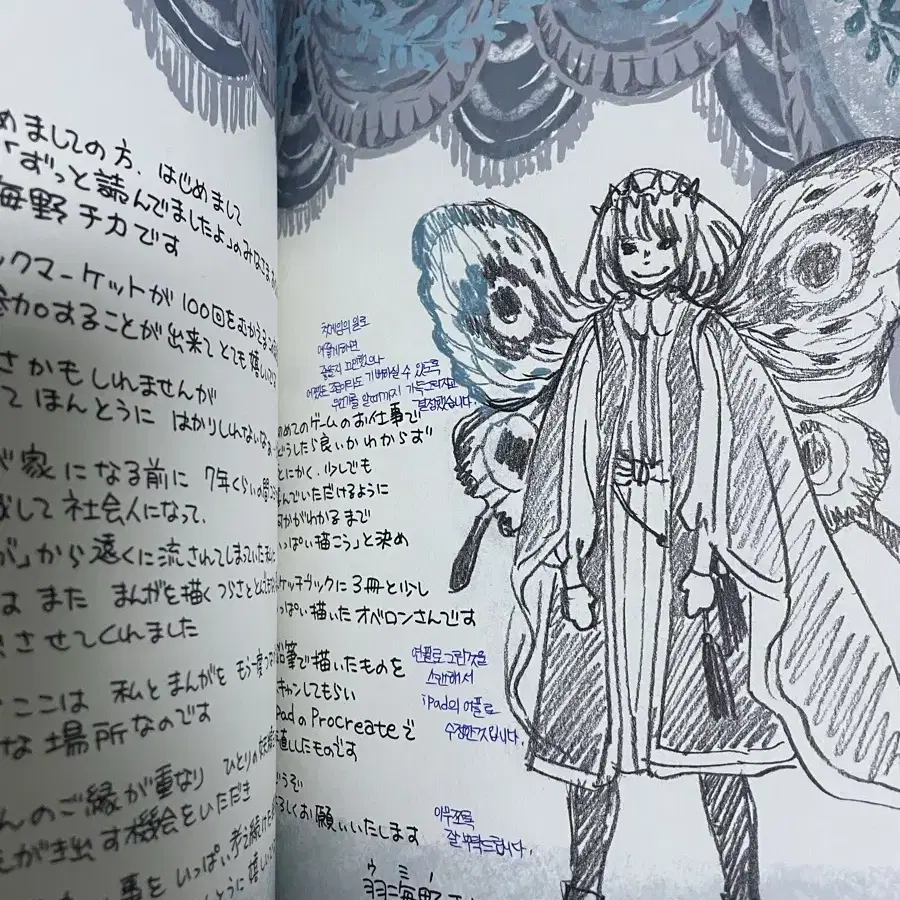 めまして の方、はじめまして
「ずっと読んでましたよ」のみなさま
海野チカです
ックマーケットが100回をむかえる
参加することが出来てとても嬉しいです
さかもしれませんが
てほんとうに はかりしれない
家になる前に 7年くらいの間
して社会人になって、
が」から遠くに流されてしまっていた私
は また まんがを描くつらさと
させてくれました
ここは 私とまんがを もう一度
な場所なのです
んのご縁が重なり ひとりの妖精
が出す機会をいただき
事を いっぱい考え続け
첫게임의 일로
어떻게하면
좋을지 고민했으나
조금이라도 기뻐하실 수 있도록
무언가를 알때까지 가득 그리자고
결심했습니다.
めてのゲームのお仕事で
どうしたら良いかわからず
とにかく、少しでも
んでいただけるように
何かがわかるまで
っぱい描こう」と決め
ケッチブックに3冊と少し
っぱい描いたオベロンさんです
鉛筆で描いたものを
キャンしてもらい
PadのProcreateで
直ししたものです
연필로 그린것을
스캔해서
iPad의 어플로
수정한것입니다.
どうぞ
ろしくお願いいたします
아무쪼록
잘 부탁드립니다.
ウミノ
羽海野チ